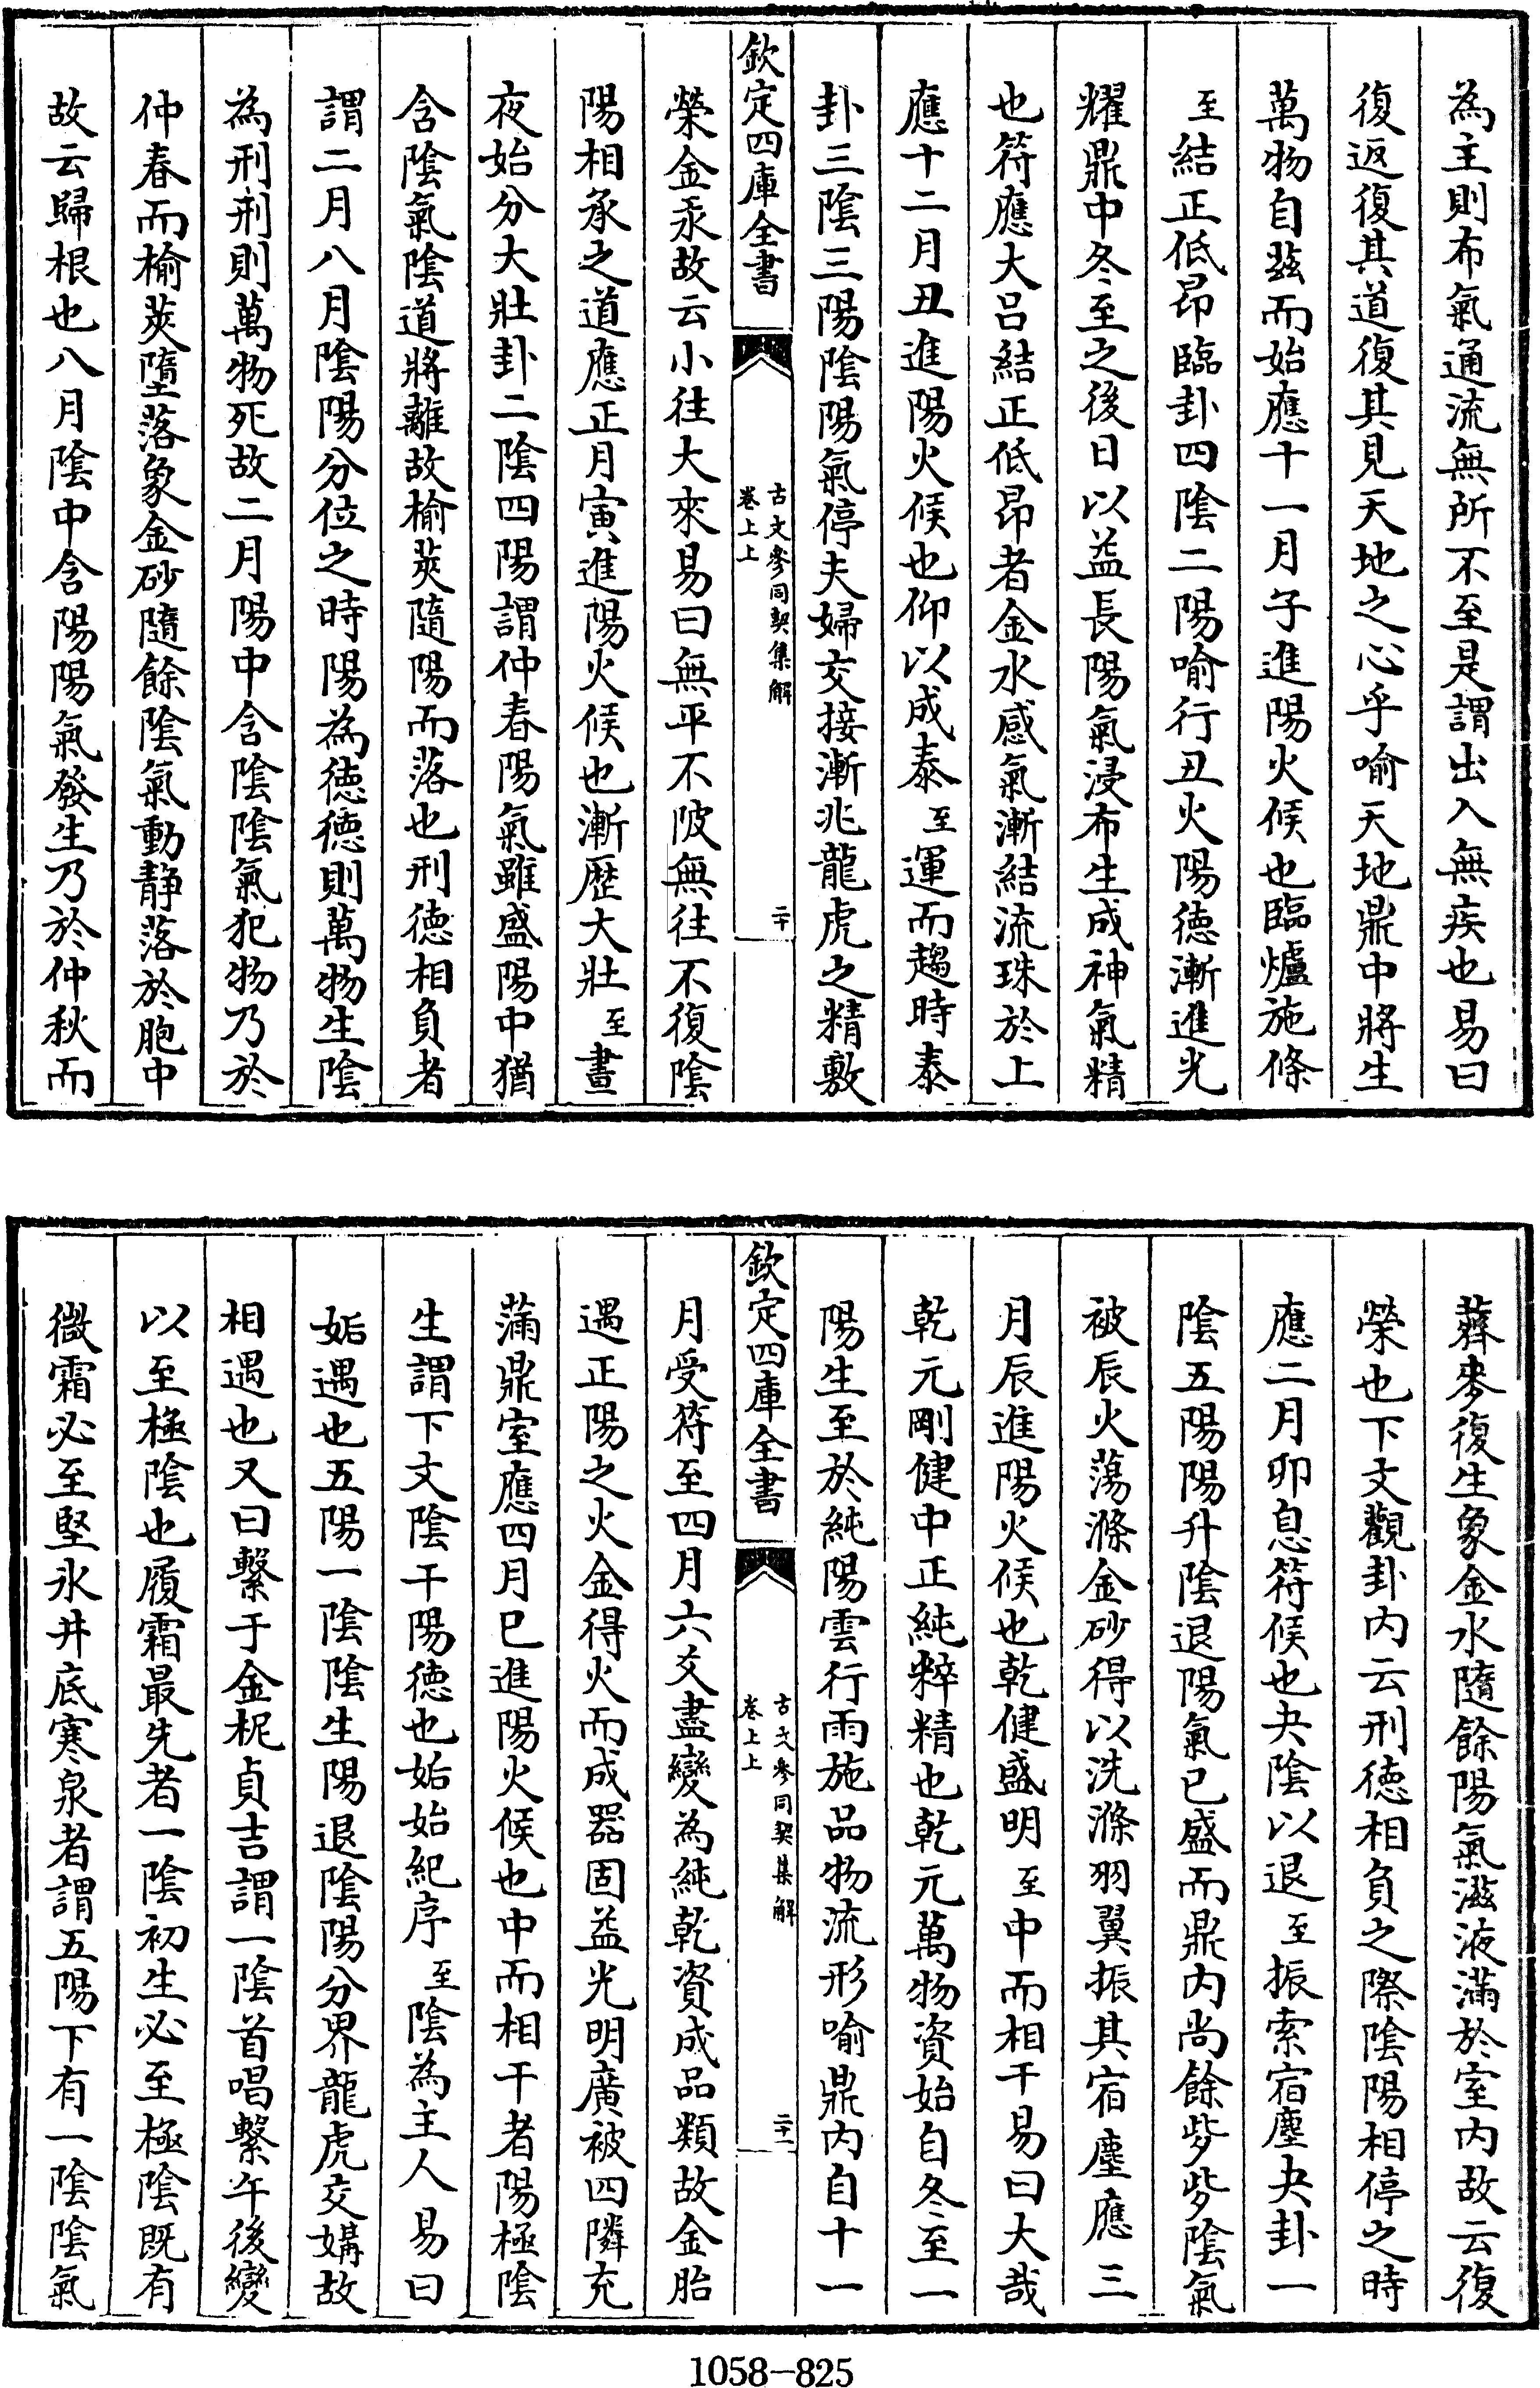 為主則布氣通流無所不至是謂出入無疾也易曰
復返復其道復其見天地之心乎喻天地鼎中將生
萬物自茲而始應十一月子進陽火候也臨爐施條
至結正低昂臨卦四陰二陽喻行丑火陽徳漸進光
耀鼎中冬至之後日以益長陽氣浸布生成神氣精
也符應大吕結正低昂者金水感氣漸結流珠於上
應十二月丑進陽火候也仰以成泰至運而趨時泰
卦三陰三陽陰陽氣停夫婦交接漸兆龍虎之精敷
欽定四庫全書
古文參同契集解
卷上上
二十
榮金汞故云小往大來易曰無平不陂無往不復陰
陽相承之道應正月寅進陽火候也漸歴大壯至晝
夜始分大壯卦二陰四陽謂仲春陽氣雖盛陽中猶
含陰氣陰道將離故榆莢隨陽而落也刑徳相負者
謂二月八月陰陽分位之時陽為徳徳則萬物生陰
為刑刑則萬物死故二月陽中含陰陰氣犯物乃於
仲春而榆莢墮落象金砂隨餘陰氣動静落於胞中
故云歸根也八月陰中含陽陽氣發生乃於仲秋而
蕣麥復生象金水隨餘陽氣滋液滿於室内故云復
榮也下文觀卦内云刑徳相負之際陰陽相停之時
應二月卯息符候也夬陰以退至振索宿塵夬卦一
陰五陽陽升陰退陽氣已盛而鼎内尚餘些些陰氣
被辰火蕩滌金砂得以洗滌羽翼振其宿塵應三
月辰進陽火候也乾健盛明至中而相干易曰大哉
乾元剛健中正純粹精也乾元萬物資始自冬至一
陽生至於純陽雲行雨施品物流形喻鼎内自十一
欽定四庫全書
古文參同契集解
卷上上
二十一
月受符至四月六爻盡變為純乾資成品類故金胎
遇正陽之火金得火而成器固益光明廣被四隣充
蒲鼎室應四月巳進陽火候也中而相干者陽極陰
生謂下文陰干陽徳也姤始紀序至陰為主人易曰
姤遇也五陽一陰陰生陽退陰陽分界龍虎交媾故
相遇也又曰繫于金柅貞吉謂一陰首唱繫午後變
以至極陰也履霜最先者一陰初生必至極陰既有
微霜必至堅氷井底寒泉者謂五陽下有一陰陰氣
1058-825